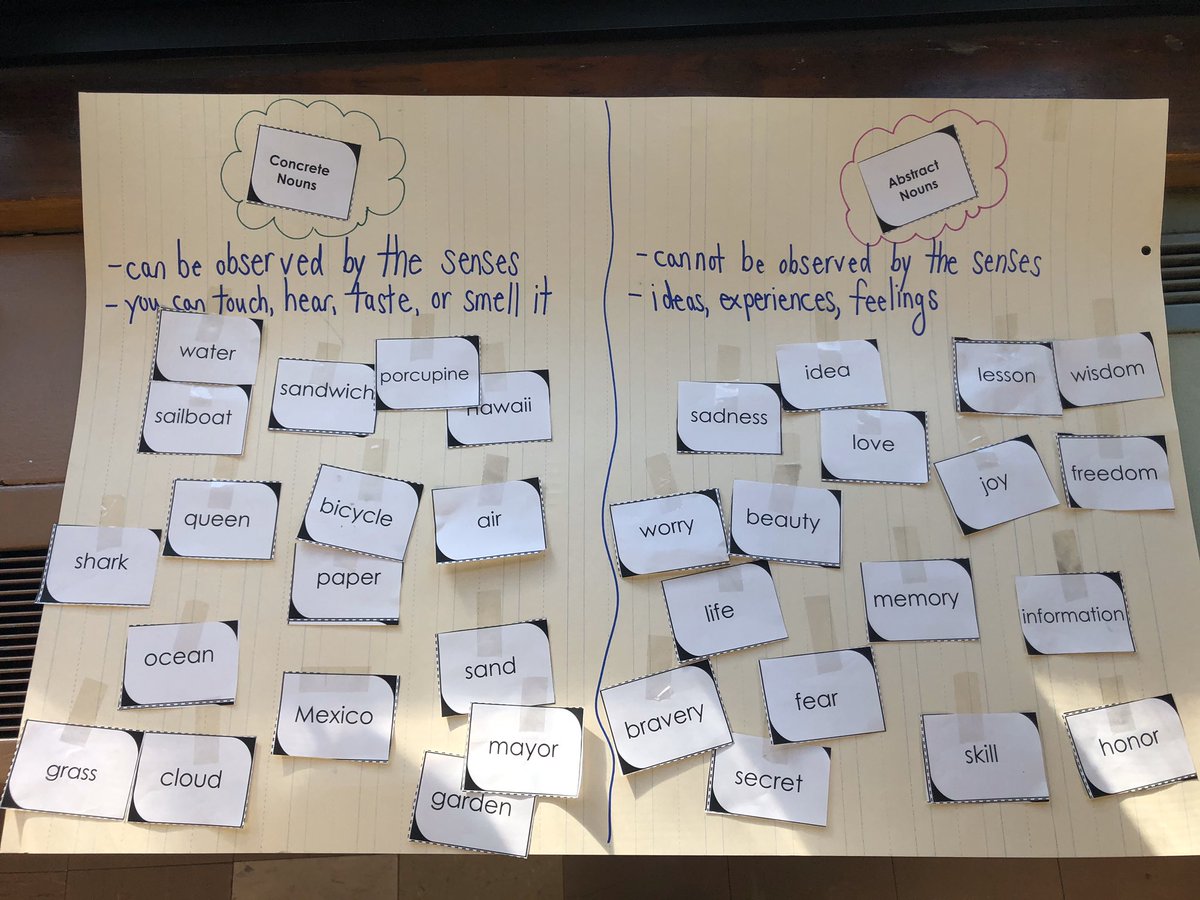 Concrete
Nouns
-can be observed by the senses
-you can touch, hear, taste, or smell it
water
sandwich
porcupine
Hawaii
sailboat
queen
bicycle
air
shark
paper
ocean
sand
Mexico
mayor
grass
cloud
garden
Abstract
Nouns
-cannot be observed by the senses
-ideas, experiences, feelings
idea
lesson
wisdom
sadness
love
joy
freedom
worry
beauty
life
memory
information
bravery
fear
secret
skill
honor